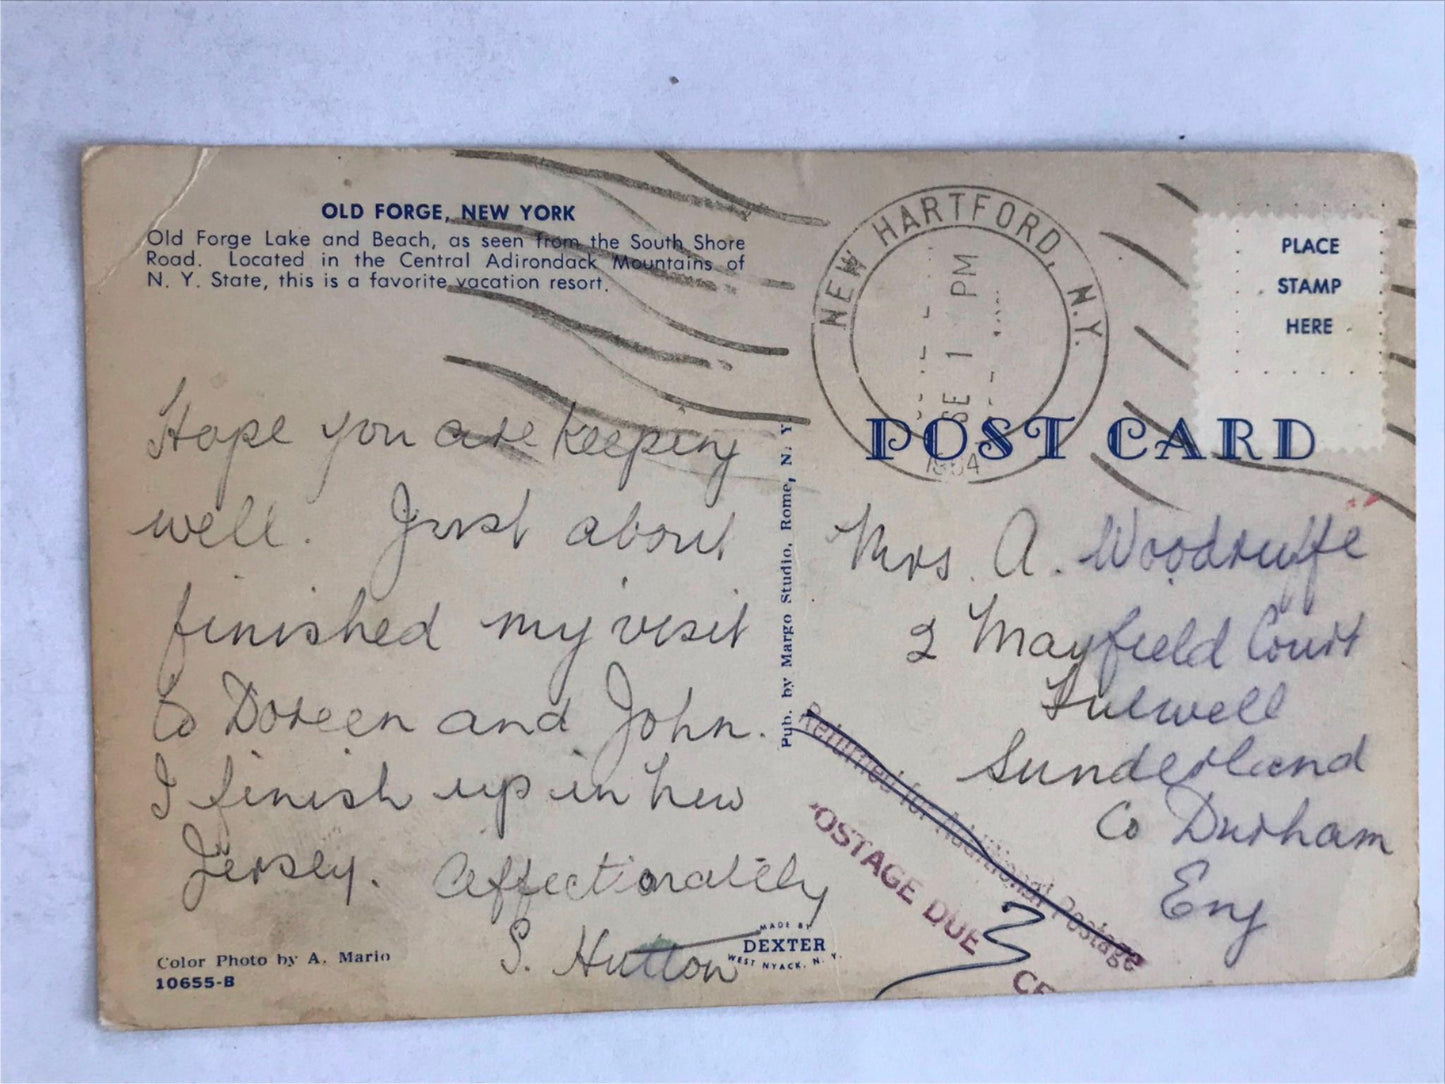 OLD FORGE, NEW YORK
Old Forge Lake and Beach, as seen from the South Shore
Road. Located in the Central Adirondack Mountains of
N. Y. State, this is a favorite vacation resort.
Hope you are keeping
well. Just about
finished my visit
to Doreen and John.
I finish up in New
Jersey. Affectionately
S. Hutton
Color Photo by A. Mario
10655-B
MADE BY
DEXTER
WEST NYACK, N. Y.
Pub. by Margo Studio, Rome, N. Y
NEW HARTFORD, N.Y.
SE 1 PM
PLACE
STAMP
HERE
POST CARD
Mrs. A. Woodruffe
2 Mayfield Court
Fulwell
Sunderland
Co Durham
Eng
Returned for Additional Postage
POSTAGE DUE 3 CE